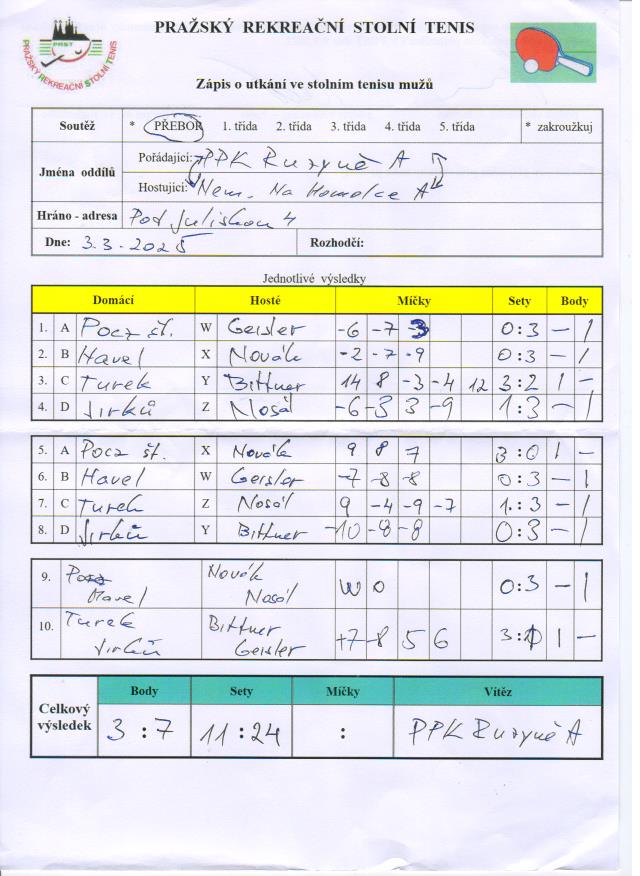 PRAŽSKÝ REKREAČNÍ STOLNÍ TENIS
PRST
PRAŽSKÝ REKREAČNÍ STOLNÍ TENIS
Zápis o utkání ve stolním tenisu mužů
Soutěž * PŘEBOR 1. třída 2. třída 3. třída 4. třída 5. třída * zakroužkuj
Jména oddílů Pořádající: PPK Ruzyně A
Hostující: Nem. Na Homolce A
Hráno - adresa Pod Juliskou 4
Dne: 3.3.2025 Rozhodčí:
Jednotlivé výsledky
Domácí Hosté Míčky Sety Body
1. A Pocz št. W Geisler -6 -7 -3 0:3 - 1
2. B Havel X Novák -2 -7 -9 0:3 - 1
3. C Turek Y Bittner 14 8 -3 -4 12 3:2 1 -
4. D Jirků Z Nosál -6 -3 3 -9 1:3 - 1
5. A Pocz št. X Novák 9 8 7 3:0 1 -
6. B Havel W Geisler -7 -8 -8 0:3 - 1
7. C Turek Z Nosál 9 -4 -9 -7 1:3 - 1
8. D Jirků Y Bittner -10 -8 -8 0:3 - 1
9. Pocz Novák
Havel Nosál W O 0:3 - 1
10. Turek Bittner
Jirků Geisler +7 -8 5 6 3:1 1 -
Celkový výsledek Body Sety Míčky Vítěz
3:7 11:24 : PPK Ruzyně A